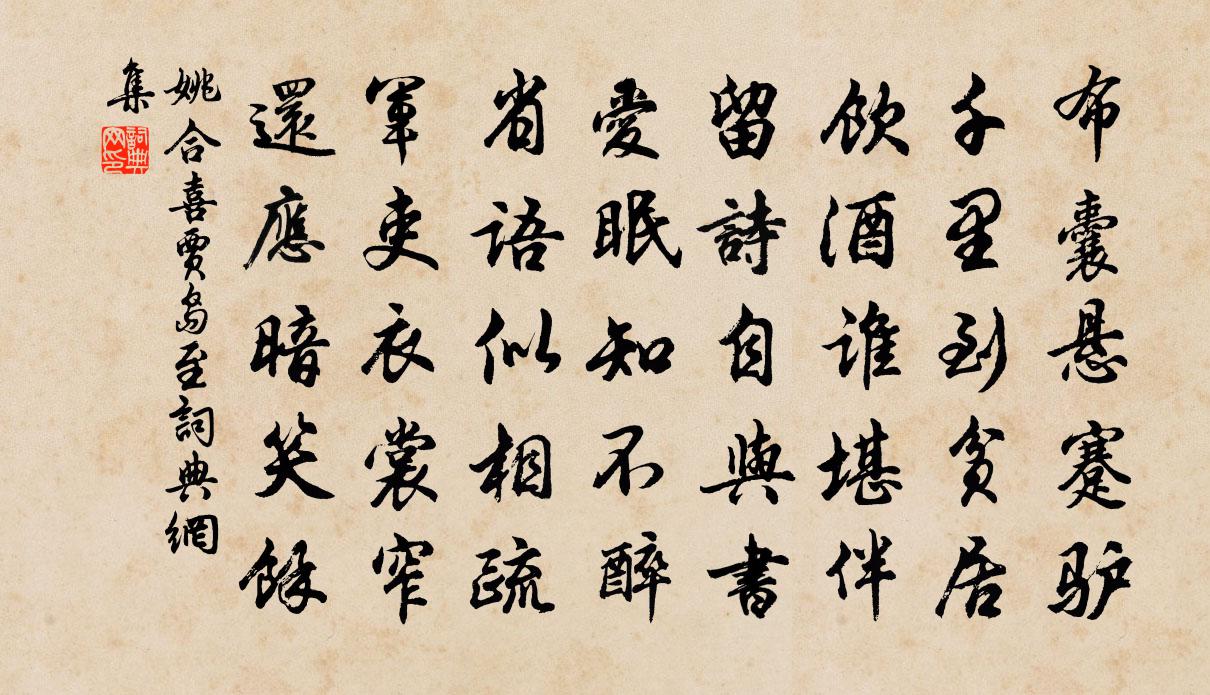 布囊悬蹇驴
千里到贫居
飲酒誰堪伴
留詩自與書
愛眠知不醉
省語似相疏
軍吏衣裳窄
還應暗笑餘
姚合喜賈島至詞典網
集
詞典网印